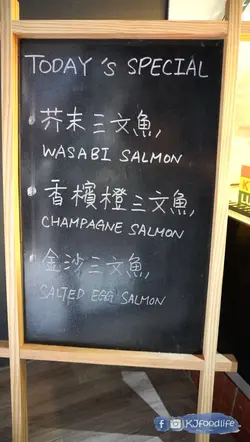 TODAY'S SPECIAL
芥末三文魚,
WASABI SALMON
香檳橙三文魚,
CHAMPAGNE SALMON
金沙三文魚,
SALTED EGG SALMON
KJfoodlife